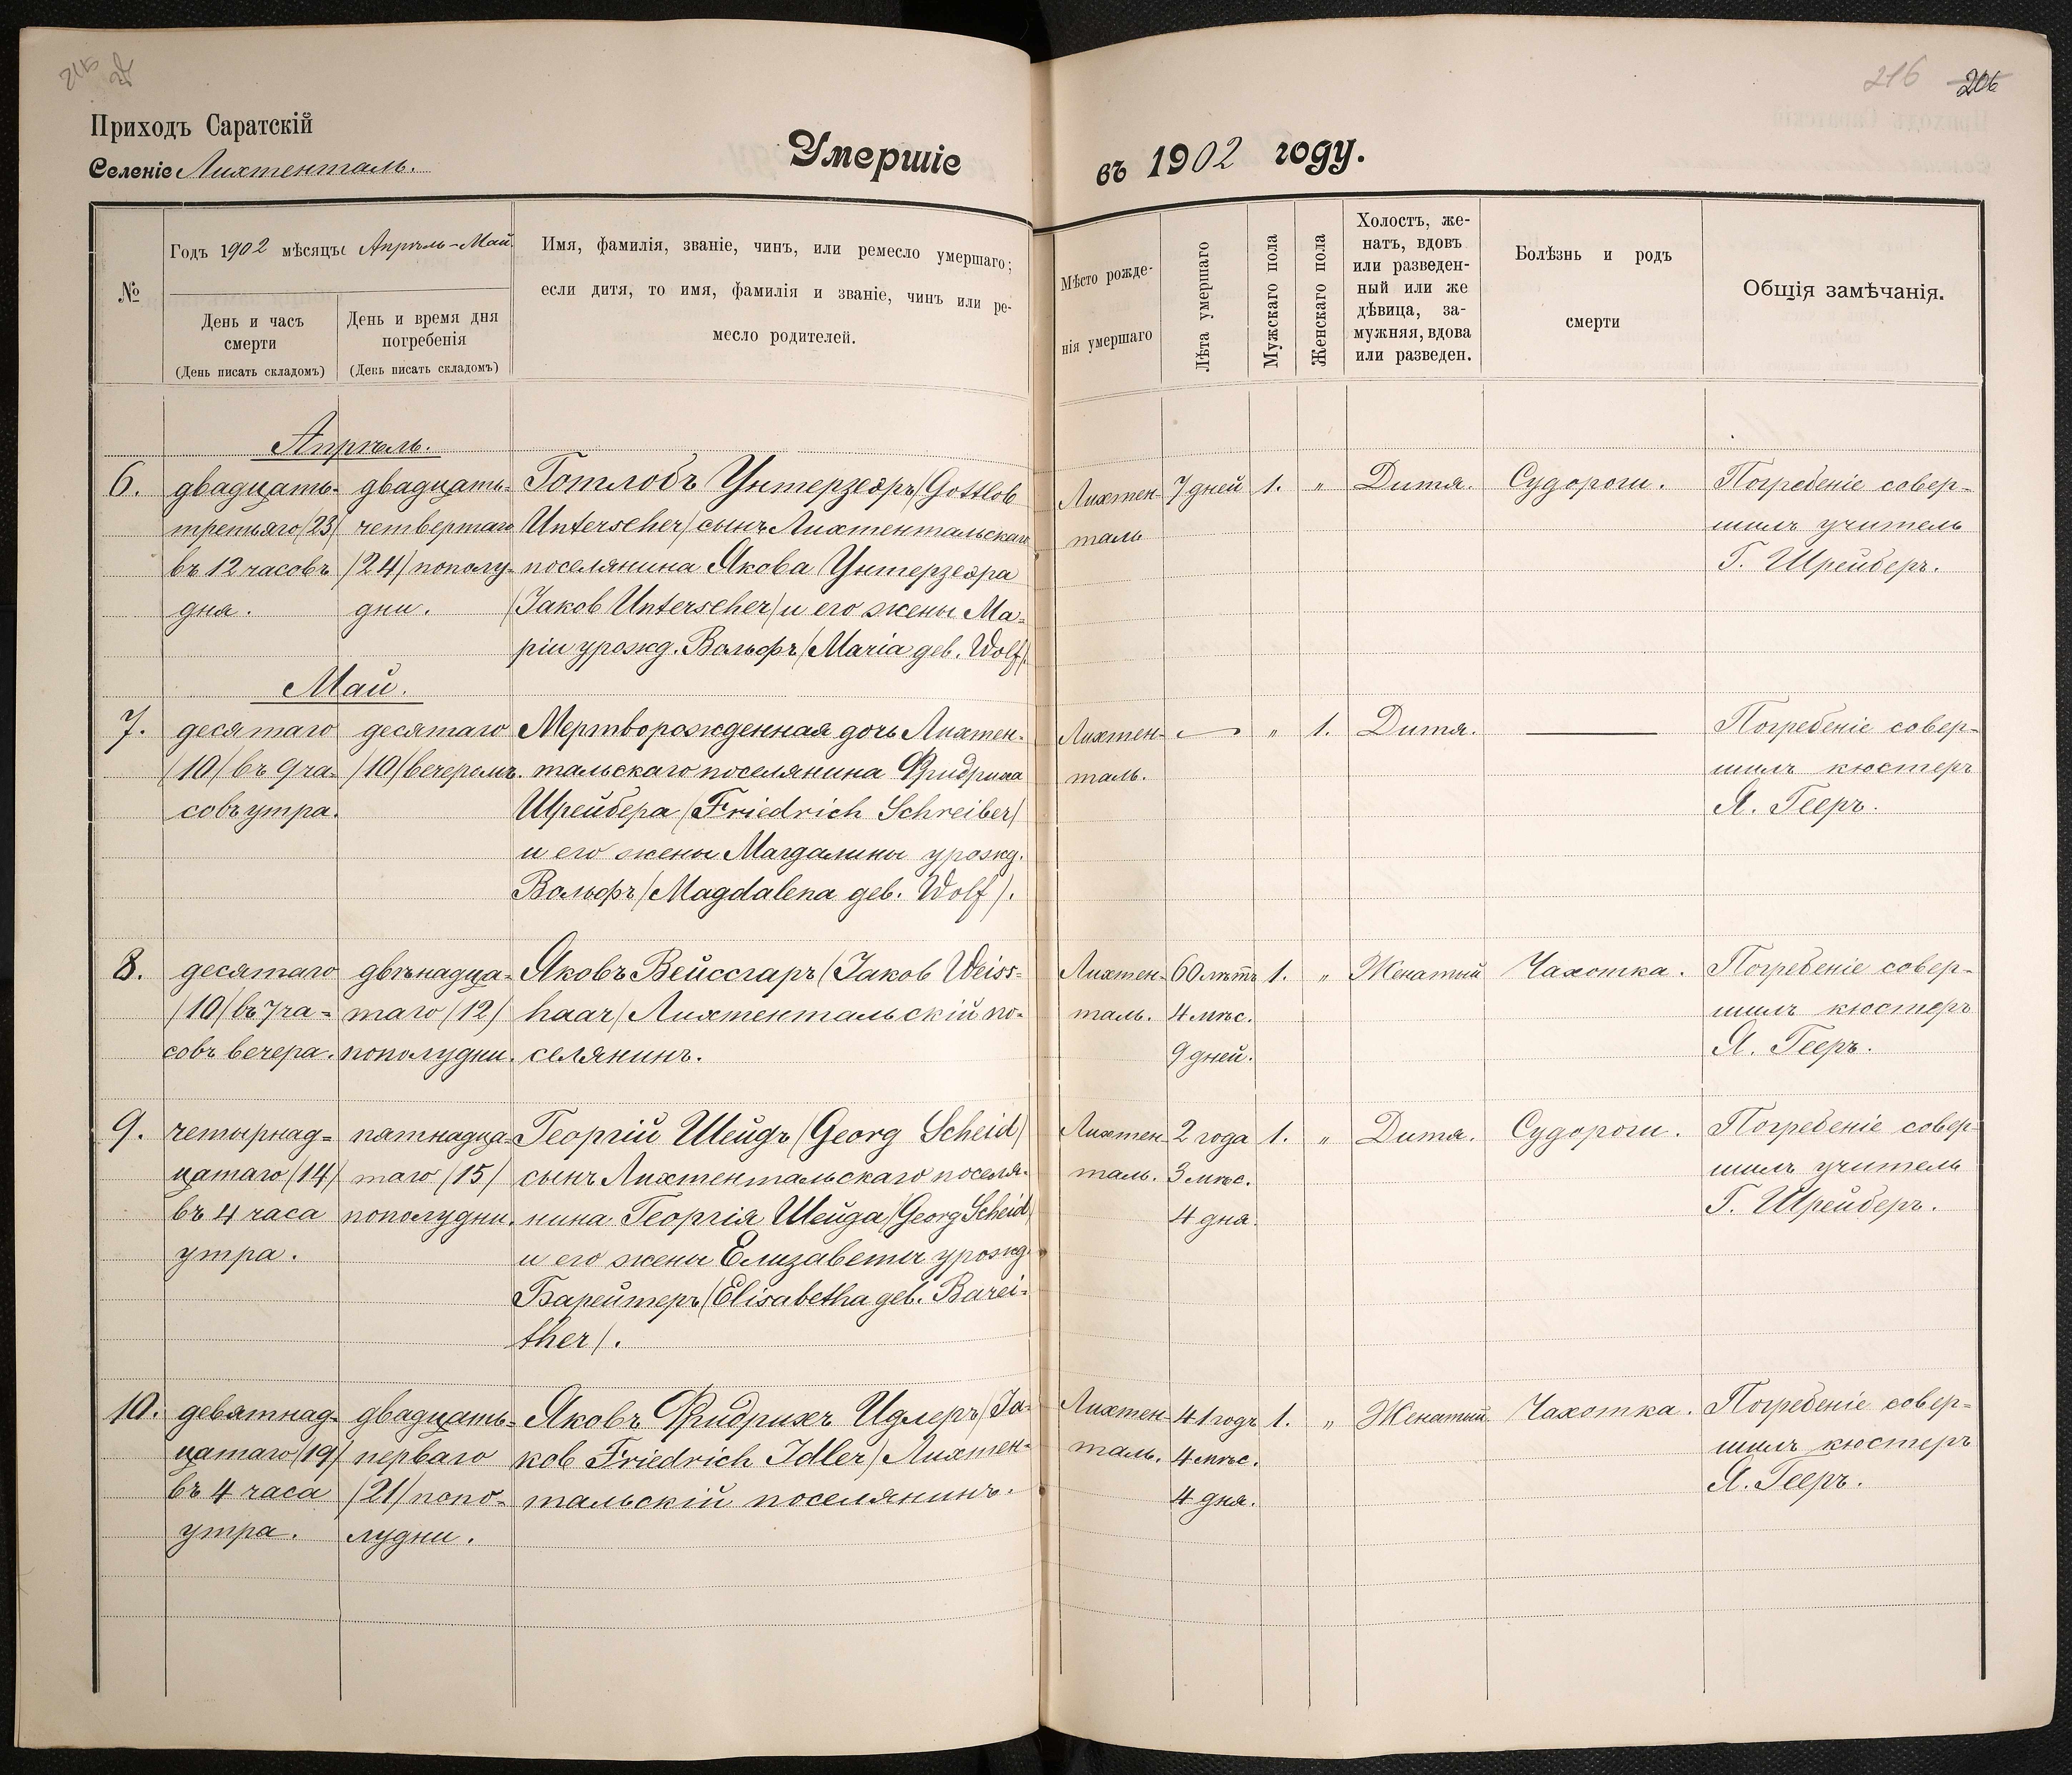 216
206
Приходъ Саратскій
Селеніе Лихтенталь.
Умершіе
въ 1902 году.
№
Годъ 1902 мѣсяцъ Апрѣль-Май.
День и часъ
смерти
(День писать складомъ)
День и время дня
погребенія
(День писать складомъ)
Имя, фамилія, званіе, чинъ, или ремесло умершаго;
если дитя, то имя, фамилія и званіе, чинъ или ре-
месло родителей.
Мѣсто рожде-
нія умершаго
Лѣта умершаго
Мужскаго пола
Женскаго пола
Холостъ, же-
натъ, вдовъ
или разведен-
ный или же
дѣвица, за-
мужняя, вдова
или разведен.
Болѣзнь и родъ
смерти
Общія замѣчанія.
Апрѣль.
6.
двадцать-
третьяго /23/
въ 12 часовъ
дня.
двадцать-
четвертаго
/24/ пополу-
дни.
Готлобъ Унтерзееръ /Gottlob
Unterseher/ сынъ Лихтентальскаго
поселянина Якова Унтерзеера
/Jakob Unterseher/ и его жены Ма-
ріи урожд. Вольфъ /Maria geb. Wolf/.
Лихтен-
таль
7 дней
1.
"
Дитя.
Судороги.
Погребеніе совер-
шилъ учитель
Г. Шрейберъ.
Май.
7.
десятаго
/10/ въ 9 ча-
совъ утра.
десятаго
/10/ вечеромъ.
Мертворожденная дочь Лихтен-
тальскаго поселянина Фридриха
Шрейбера /Friedrich Schreiber/
и его жены Магдалины урожд.
Вольфъ /Magdalena geb. Wolf/.
Лихтен-
таль.
—
"
1.
Дитя.
—
Погребеніе совер-
шилъ кюстеръ
Я. Гееръ.
8.
десятаго
/10/ въ 7 ча-
совъ вечера.
двѣнадца-
таго /12/
пополудни.
Яковъ Вейссгаръ /Jakob Weiss-
haar/ Лихтентальскій по-
селянинъ.
Лихтен-
таль.
60 лѣтъ
4 мѣс.
9 дней.
1.
"
Женатый
Чахотка.
Погребеніе совер-
шилъ кюстеръ
Я. Гееръ.
9.
четырнад-
цатаго /14/
въ 4 часа
утра.
пятнадца-
таго /15/
пополудни.
Георгій Шейдъ /Georg Scheid/
сынъ Лихтентальскаго поселя-
нина Георгія Шейда /Georg Scheid/
и его жены Елизаветы урожд.
Барейтеръ /Elisabetha geb. Barei-
ther/.
Лихтен
таль.
2 года
3 мѣс.
4 дня.
1.
"
Дитя.
Судороги.
Погребеніе совер-
шилъ учитель
Г. Шрейберъ.
10.
девятнад-
цатаго /19/
въ 4 часа
утра.
двадцать-
перваго
/21/ попо-
лудни.
Яковъ Фридрихъ Идлеръ /Ja-
kob Friedrich Idler/ Лихтен-
тальскій поселянинъ.
Лихтен-
таль.
41 годъ
4 мѣс.
4 дня.
1.
"
Женатый.
Чахотка.
Погребеніе совер-
шилъ кюстеръ
Я. Гееръ.